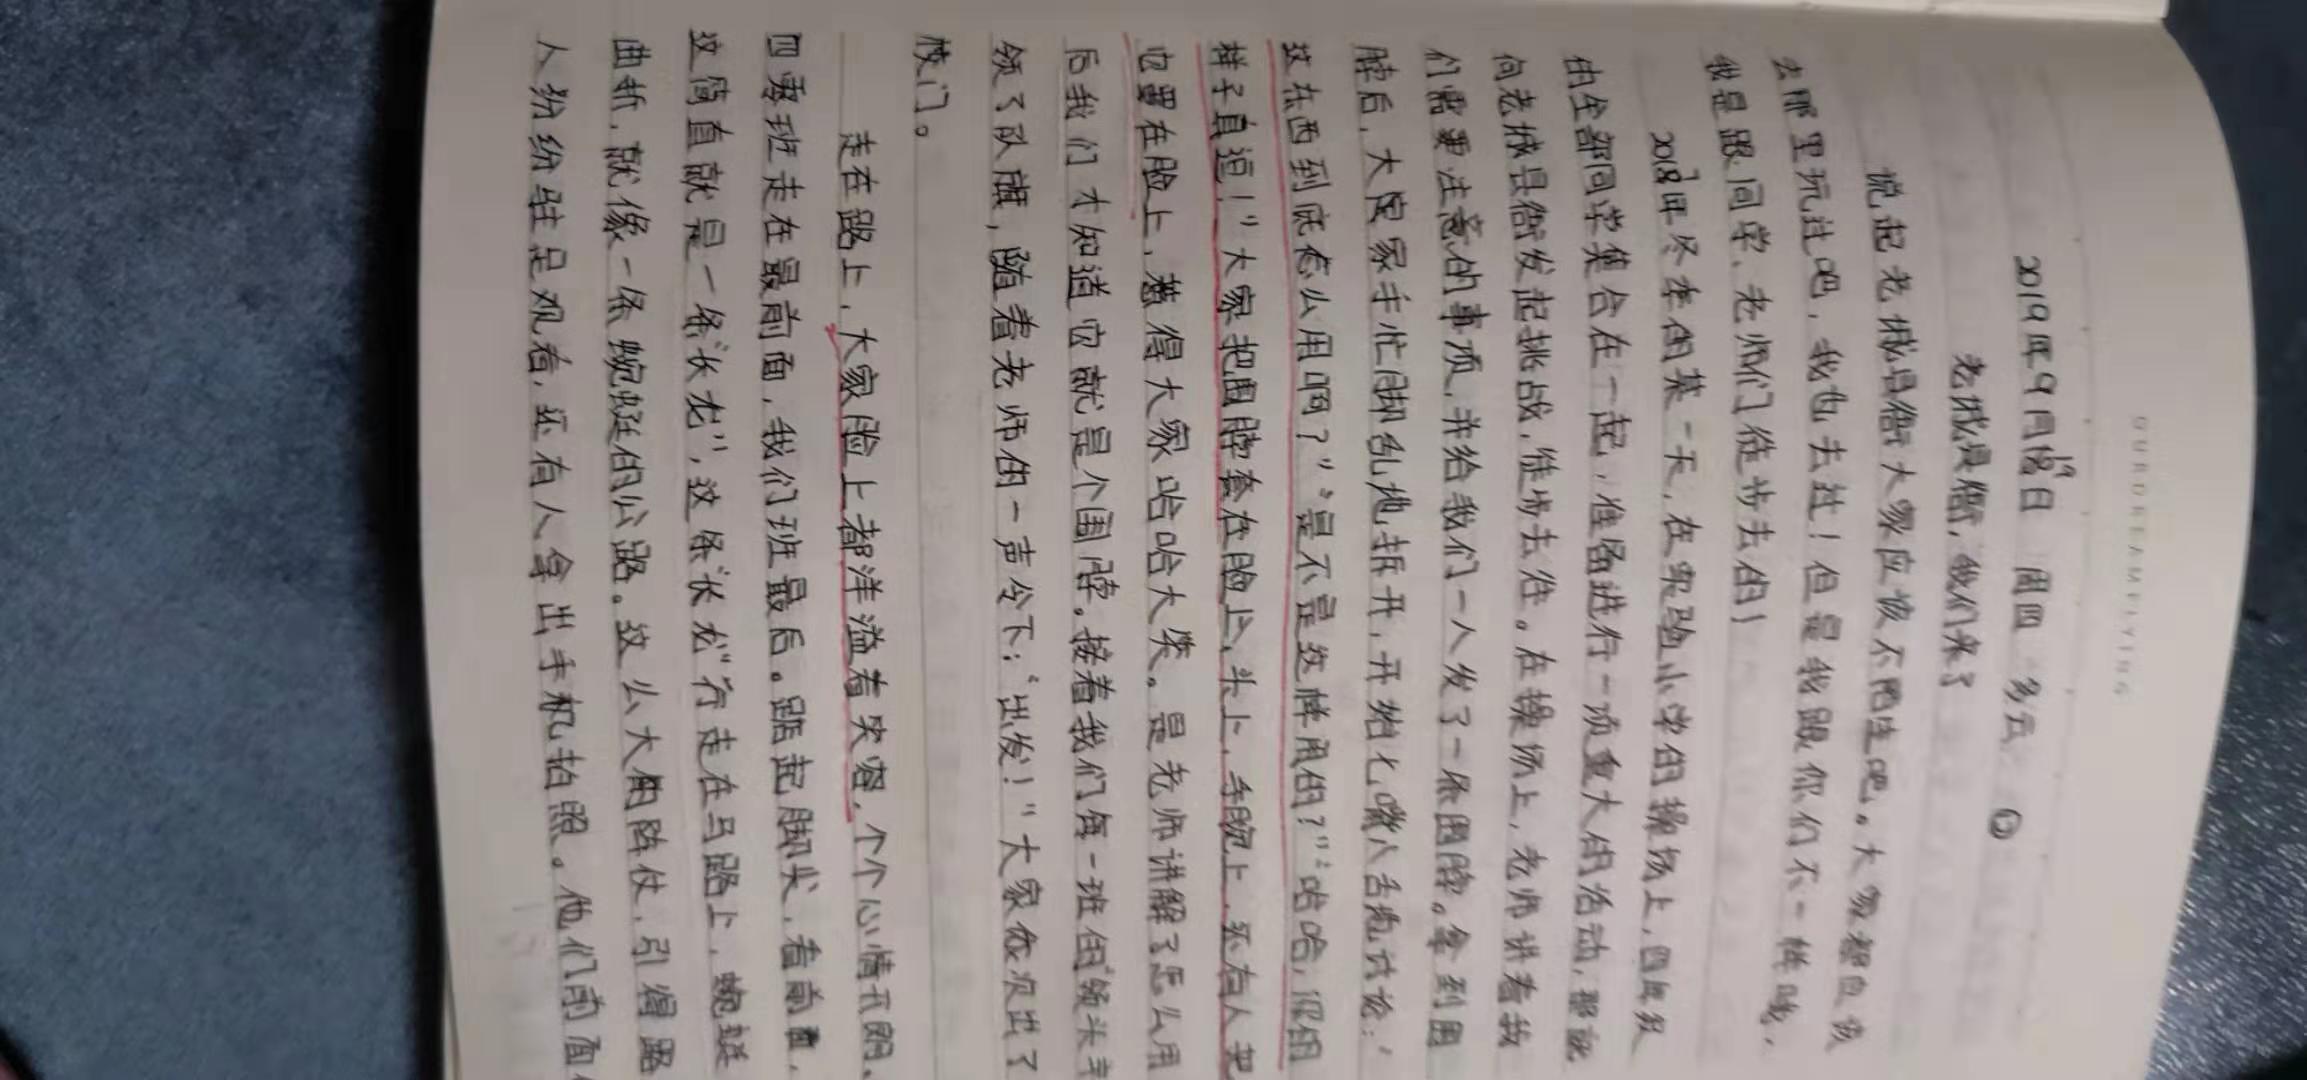 OURDREAMFLYING
2019年9月19日 周四 多云
老城县衙，我们来了
说起老城县衙大家应该不陌生吧。大家都应该
去那里玩过吧，我也去过！但是我跟你们不一样哦，
我是跟同学、老师们徒步去的！
2017年冬季的某一天，在实验小学的操场上，四年级
的全部同学集合在一起，准备进行一项重大的活动，那就
向老城县衙发起挑战，徒步去往。在操场上，老师讲着我
们需要注意的事项，并给我们一人发了一条围脖。拿到围
脖后，大家手忙脚乱地拆开，开始七嘴八舌地讨论：“
这东西到底怎么用啊？”“是不是这样用的？”“哈哈，你的
样子真逗！”大家把围脖套在脸上、头上、手腕上，还有人把
它罩在脸上，惹得大家哈哈大笑。是老师讲解了怎么用
后我们才知道它就是个围脖。接着我们每一班的领头羊
领了队旗，随着老师的一声令下：“出发！”大家依次出了
校门。
走在路上，大家脸上都洋溢着笑容，个个心情开朗、
四零班走在最前面，我们班最后。踮起脚尖，看前面，
这简直就是一条“长龙”，这条“长龙”行走在马路上，蜿蜒
曲折，就像一条蜿蜒的公路。这么大的阵仗，引得路
人纷纷驻足观看，还有人拿出手机拍照。他们前面